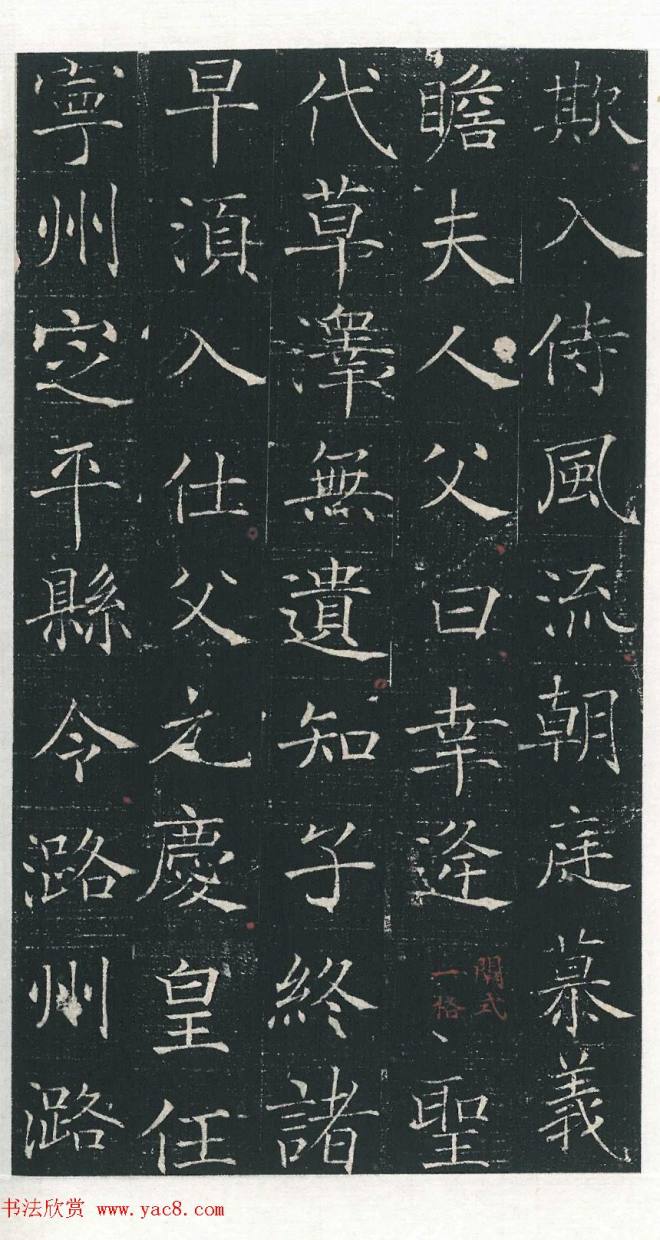 欺入侍風流朝庭慕義
瞻夫人父曰幸逄聖
間式
一格
代草澤無遺知子終諸
早湏入仕父元慶皇任
寧州定平縣令潞州潞
书法欣赏 www.yac8.com